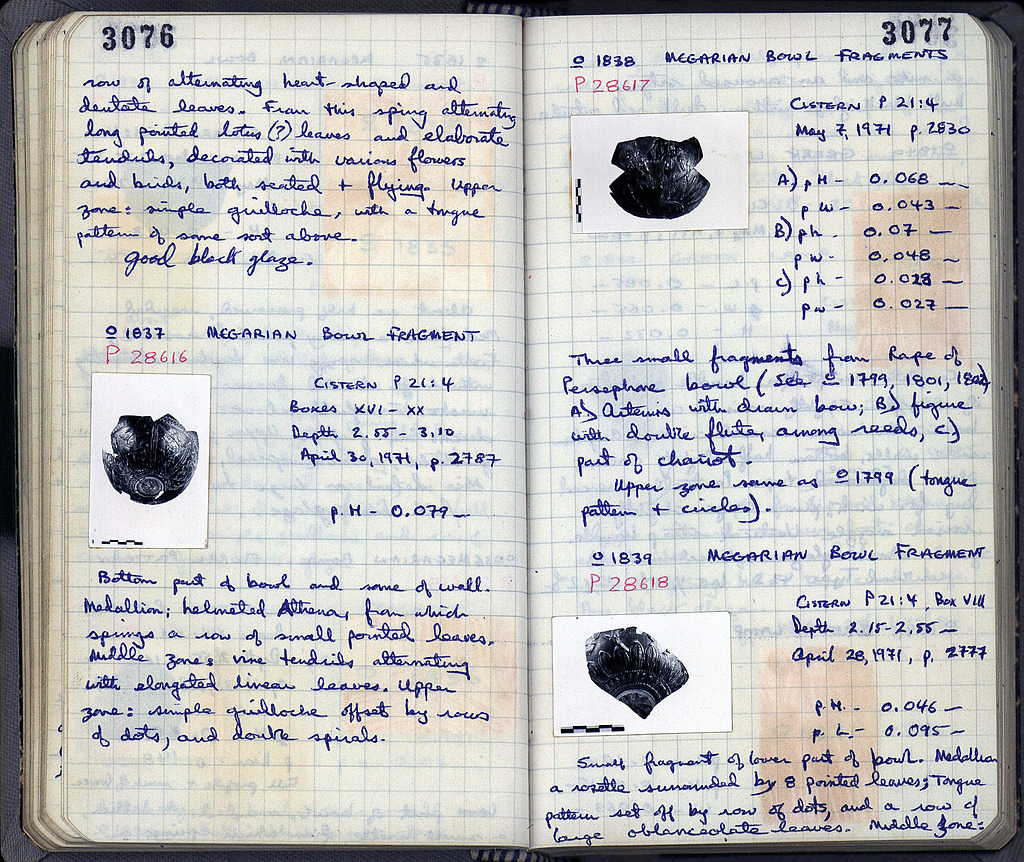 3076
row of alternating heart-shaped and
dentate leaves. From this spring alternating
long pointed lotus (?) leaves and elaborate
tendrils, decorated with various flowers
and birds, both seated + flying. Upper
zone: simple guilloche, with a tongue
pattern of some sort above.
Good black glaze.
o 1837 MEGARIAN BOWL FRAGMENT
P 28616
CISTERN P 21:4
Boxes XVI - XX
Depth 2.55 - 3.10
April 30, 1971, p. 2787
p.H - 0.079 —
Bottom part of bowl and some of wall.
Medallion; helmeted Athena, from which
springs a row of small pointed leaves.
Middle zone: vine tendrils alternating
with elongated linear leaves. Upper
zone: simple guilloche offset by rows
of dots, and double spirals.
3077
o 1838 MEGARIAN BOWL FRAGMENTS
P 28617
CISTERN P 21:4
May 7, 1971 p. 2830
A) p H - 0.068 —
p W - 0.043 —
B) p h - 0.07 —
p w - 0.048 —
C) p h - 0.028 —
p w - 0.027 —
Three small fragments from Rape of
Persephone bowl (See o 1799, 1801, 1802)
A) Artemis with drawn bow; B) figure
with double flute, among reeds, C)
part of chariot.
Upper zone same as o 1799 (tongue
pattern + circles).
o 1839 MEGARIAN BOWL FRAGMENT
P 28618
CISTERN P 21:4, Box VIII
Depth 2.15-2.55 —
April 28, 1971, p. 2777
p. H. - 0.046 —
p. L. - 0.095 —
Small fragment of lower part of bowl. Medallion
a rosette surrounded by 8 pointed leaves; Tongue
pattern set off by row of dots, and a row of
large oblanceolate leaves. Middle zone: